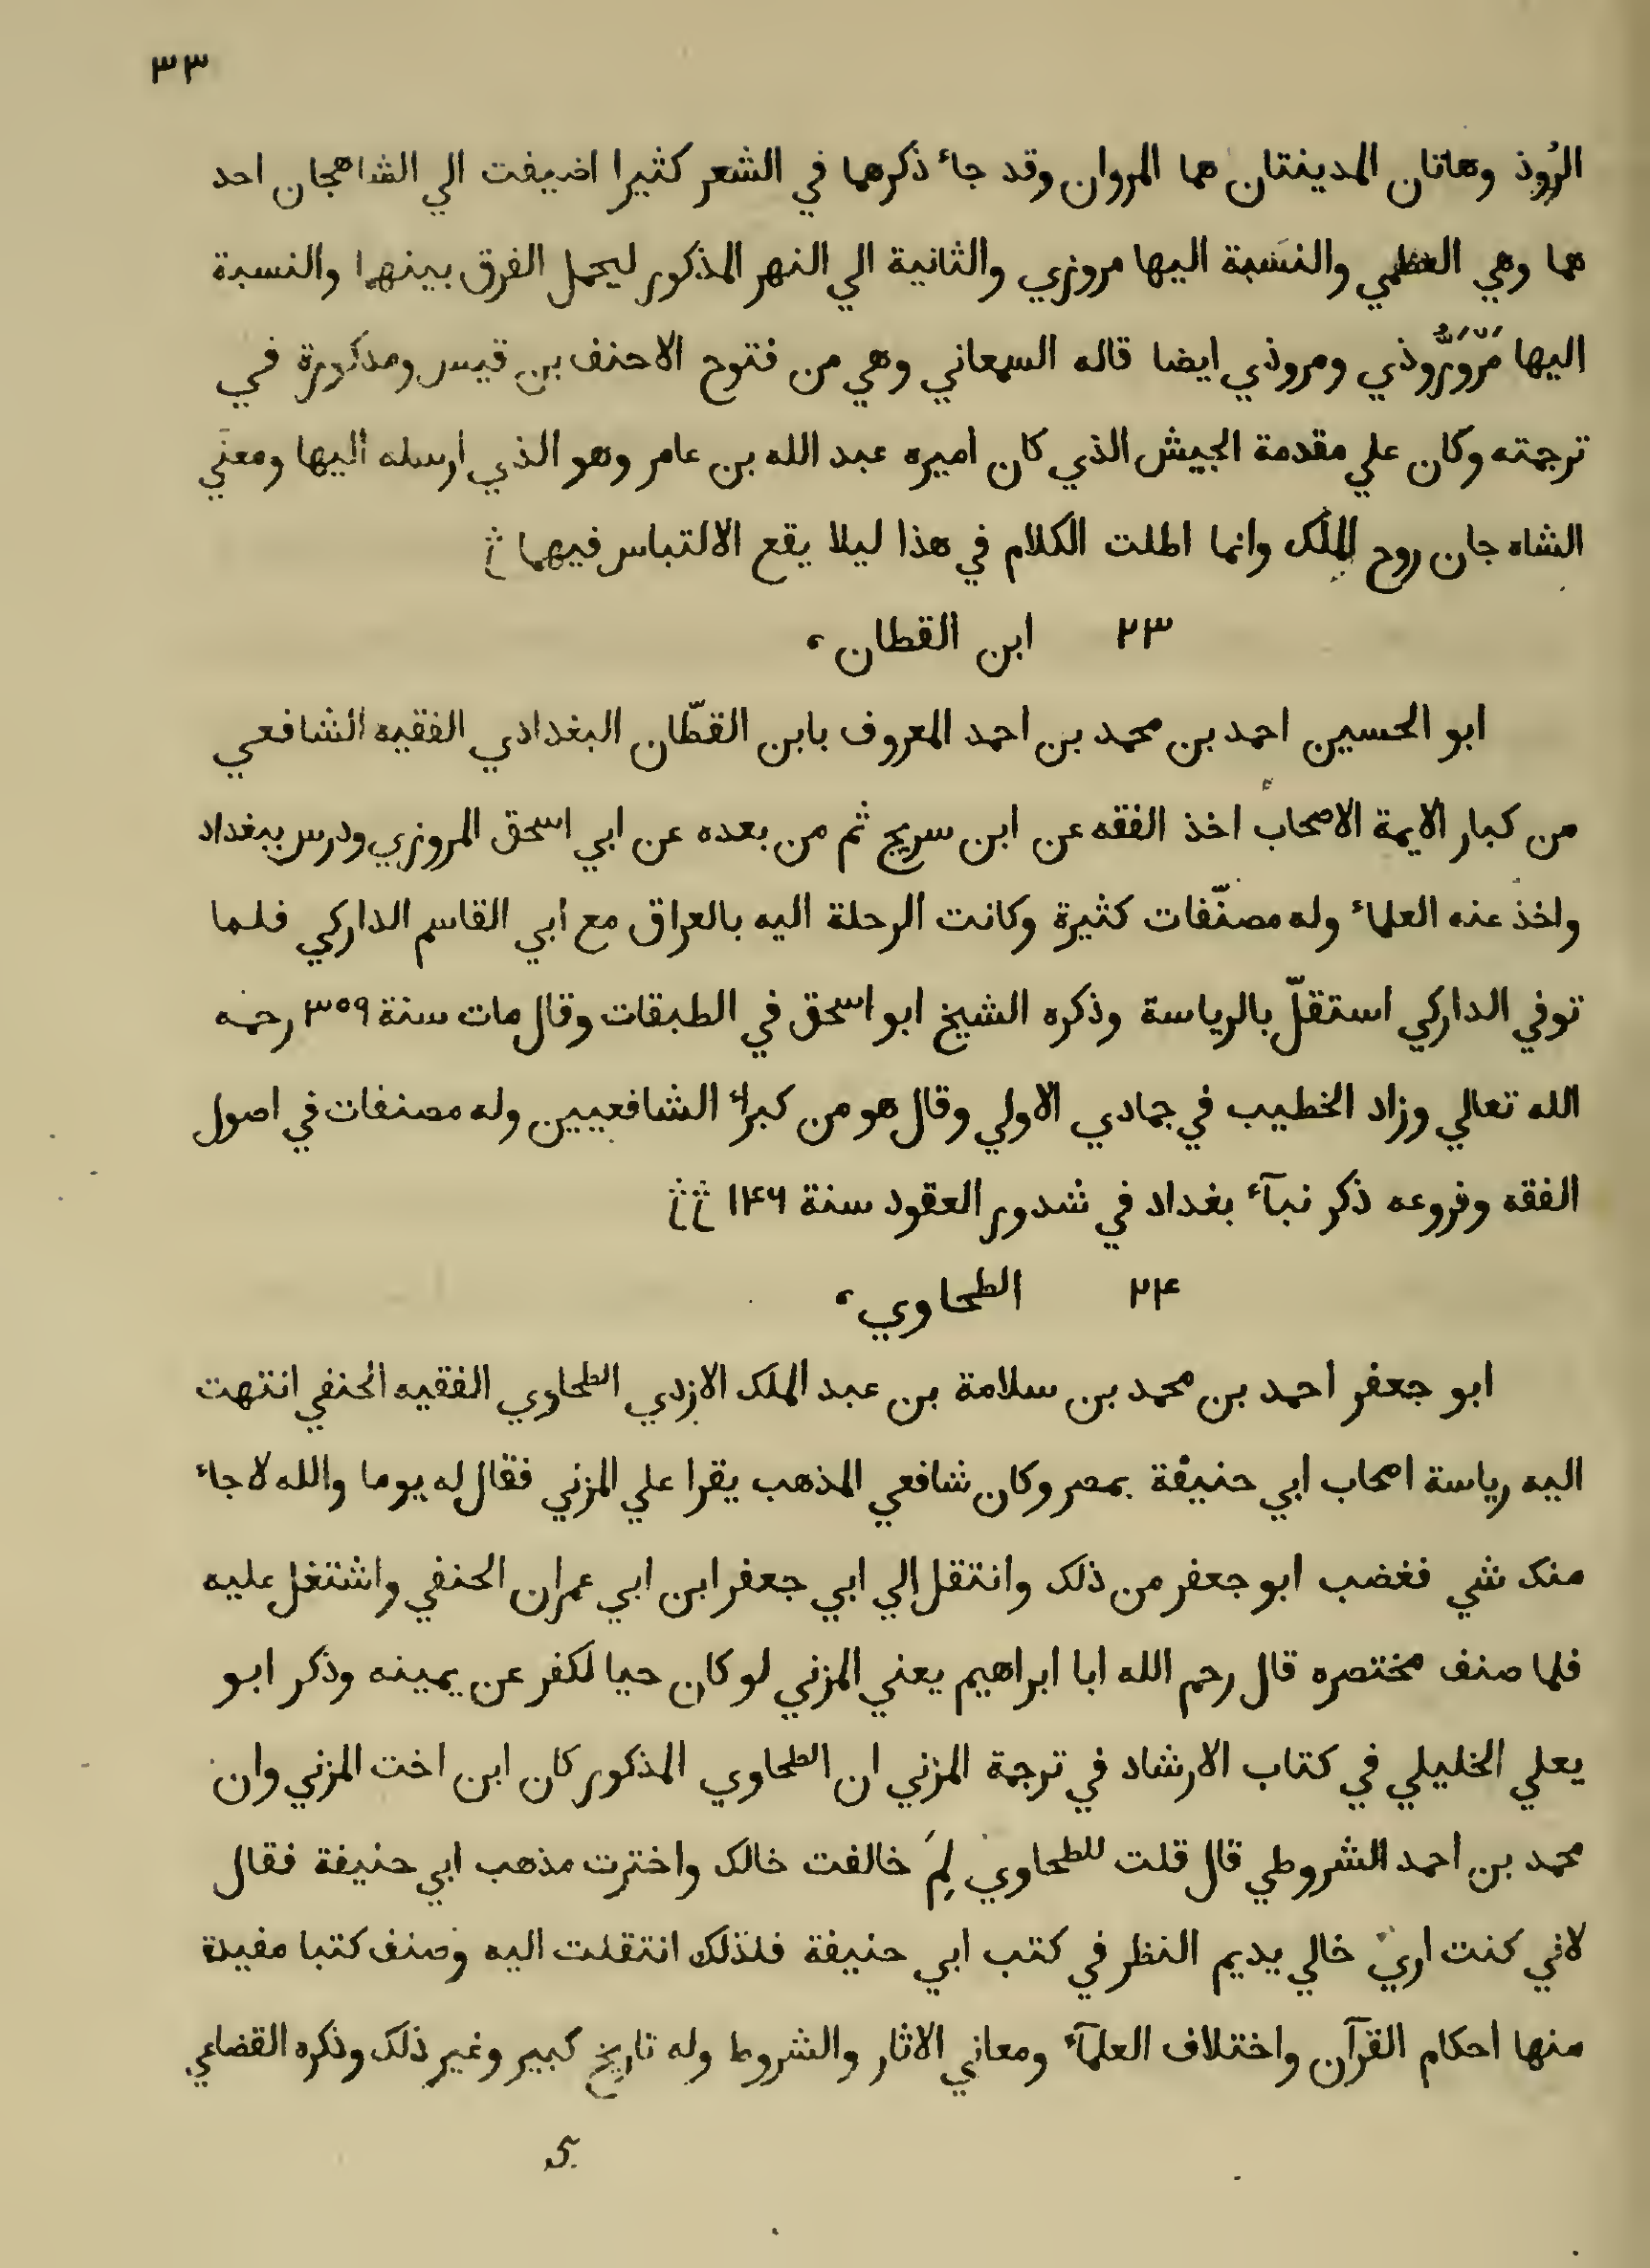 ٣٣
الرُوذ وهاتان المدينتان هما المروان وقد جاء ذكرهما في الشعر كثيرا اضيفت الي الشاهجان احد
هما وهي العظمي والنسَبة اليها مروزي والثانية الي النهر المذكور ليحمل الفرق بينهما والنسبة
اليها مَرّوَرُّوذي ومروذي ايضا قاله السمعاني وهي من فتوح الاحنف بن قيس ومذكورة في
ترجمته وكان علي مقدمة الجيش الذي كان اميره عبد الله بن عامر وهو الذي ارسله اليها ومعني
الشاه جان روح الملك وانما اطلت الكلام في هذا ليلا يقع الالتباس فيهما
٢٣ ابن القطان،
ابو الحسين احمد بن محمد بن احمد المعروف بابن القطّان البغدادي الفقيه الشافعي
من كبار الايمة الاصحاب اخذ الفقه عن ابن سريج ثم من بعده عن ابي اسحق المروزي ودرس ببغداد
واخذ عنه العلماء وله مصنّفات كثيرة وكانت الرحلة اليه بالعراق مع ابي القاسم الداركي فلما
توفي الداركي استقلّ بالرياسة وذكره الشيخ ابو اسحق في الطبقات وقال مات سنة ٣٥٩ رحمه
الله تعالي وزاد الخطيب في جمادي الاولي وقال هو من كبراء الشافعيين وله مصنفات في اصول
الفقه وفروعه ذكر نبآء بغداد في شدور العقود سنة ١۴٦
٢۴ الطحاوي،
ابو جعفر احمد بن محمد بن سلامة بن عبد الملك الازدي الطحاوي الفقيه الحنفي انتهت
اليه رياسة اصحاب ابي حنيفة بمصر وكان شافعي المذهب يقرا علي المزني فقال له يوما والله لا جاء
منك شي فغضب ابو جعفر من ذلك وانتقل الي ابي جعفر ابن ابي عمران الحنفي واشتغل عليه
فلما صنف مختصره قال رحم الله ابا ابراهيم يعني المزني لو كان حيا لكفر عن يمينه وذكر ابو
يعلي الخليلي في كتاب الارشاد في ترجمة المزني ان الطحاوي المذكور كان ابن اخت المزني وان
محمد بن احمد الشروطي قال قلت للطحاوي لِمَ خالفت خالك واخترت مذهب ابي حنيفة فقال
لاني كنت اري خالي يديم النظر في كتب ابي حنيفة فلذلك انتقلت اليه وصنف كتبا مفيدة
منها احكام القرآن واختلاف العلمآء ومعاني الاثار والشروط وله تاريخ كبير وغير ذلك وذكره القضاعي
5.